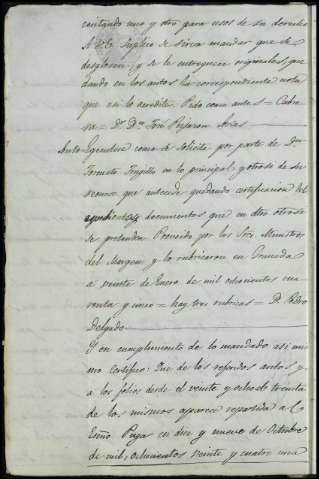 contando uno y otro para usos de su derecho
A V.E. Suplico se sirva mandar que se
desglosen, y se le entreguen originales, que
dando en los autos la correspondiente nota
que asi lo acredite. Pido como antes =
va = Dr. Dn. José Arias
Auto Egecutese como se solicita por parte de Dn
Trujillo en lo principal, y otrosi de su
recurso que antecede quedando certificacion del
y documentos que en dho otrosi
se pretenden. Proveido por los Sres Ministros
del Margen y lo rubricaron en Granada
a veinte de Enero de mil ochocientos cua
renta y cinco = hay tres rubricas = D. Pedro
Delgado
Y en cumplimiento de lo mandado asi mis
mo certifico: Que de los referidos autos y
a los folios desde el veinte y ocho al treinta
de los mismos aparece
Puga en diez y nueve de Octubre
de mil, ochocientos veinte y cuatro una